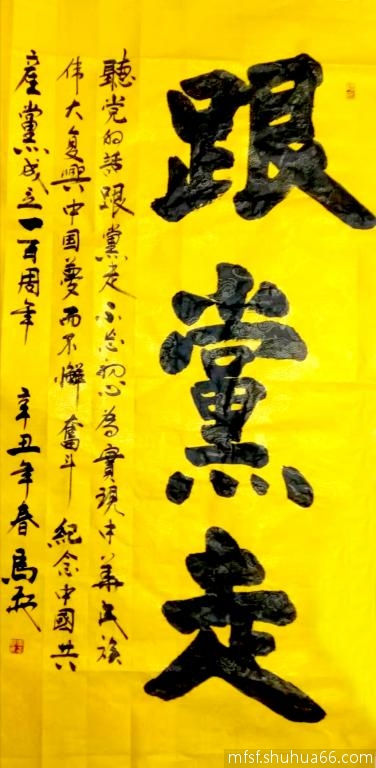 跟黨走
聽党的话跟黨走不忘初心為實現中華民族
伟大复興中国夢而不懈奮斗 紀念中國共
産黨成立一百周年 辛丑年春馬
mfsf.shuhua66.com